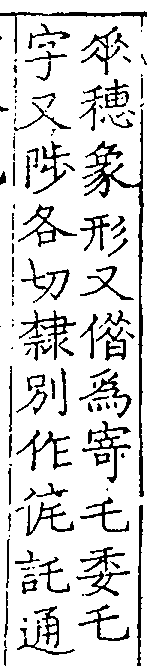 𠂹穗象形又借爲寄乇委乇
字又陟各切隸别作侂託通